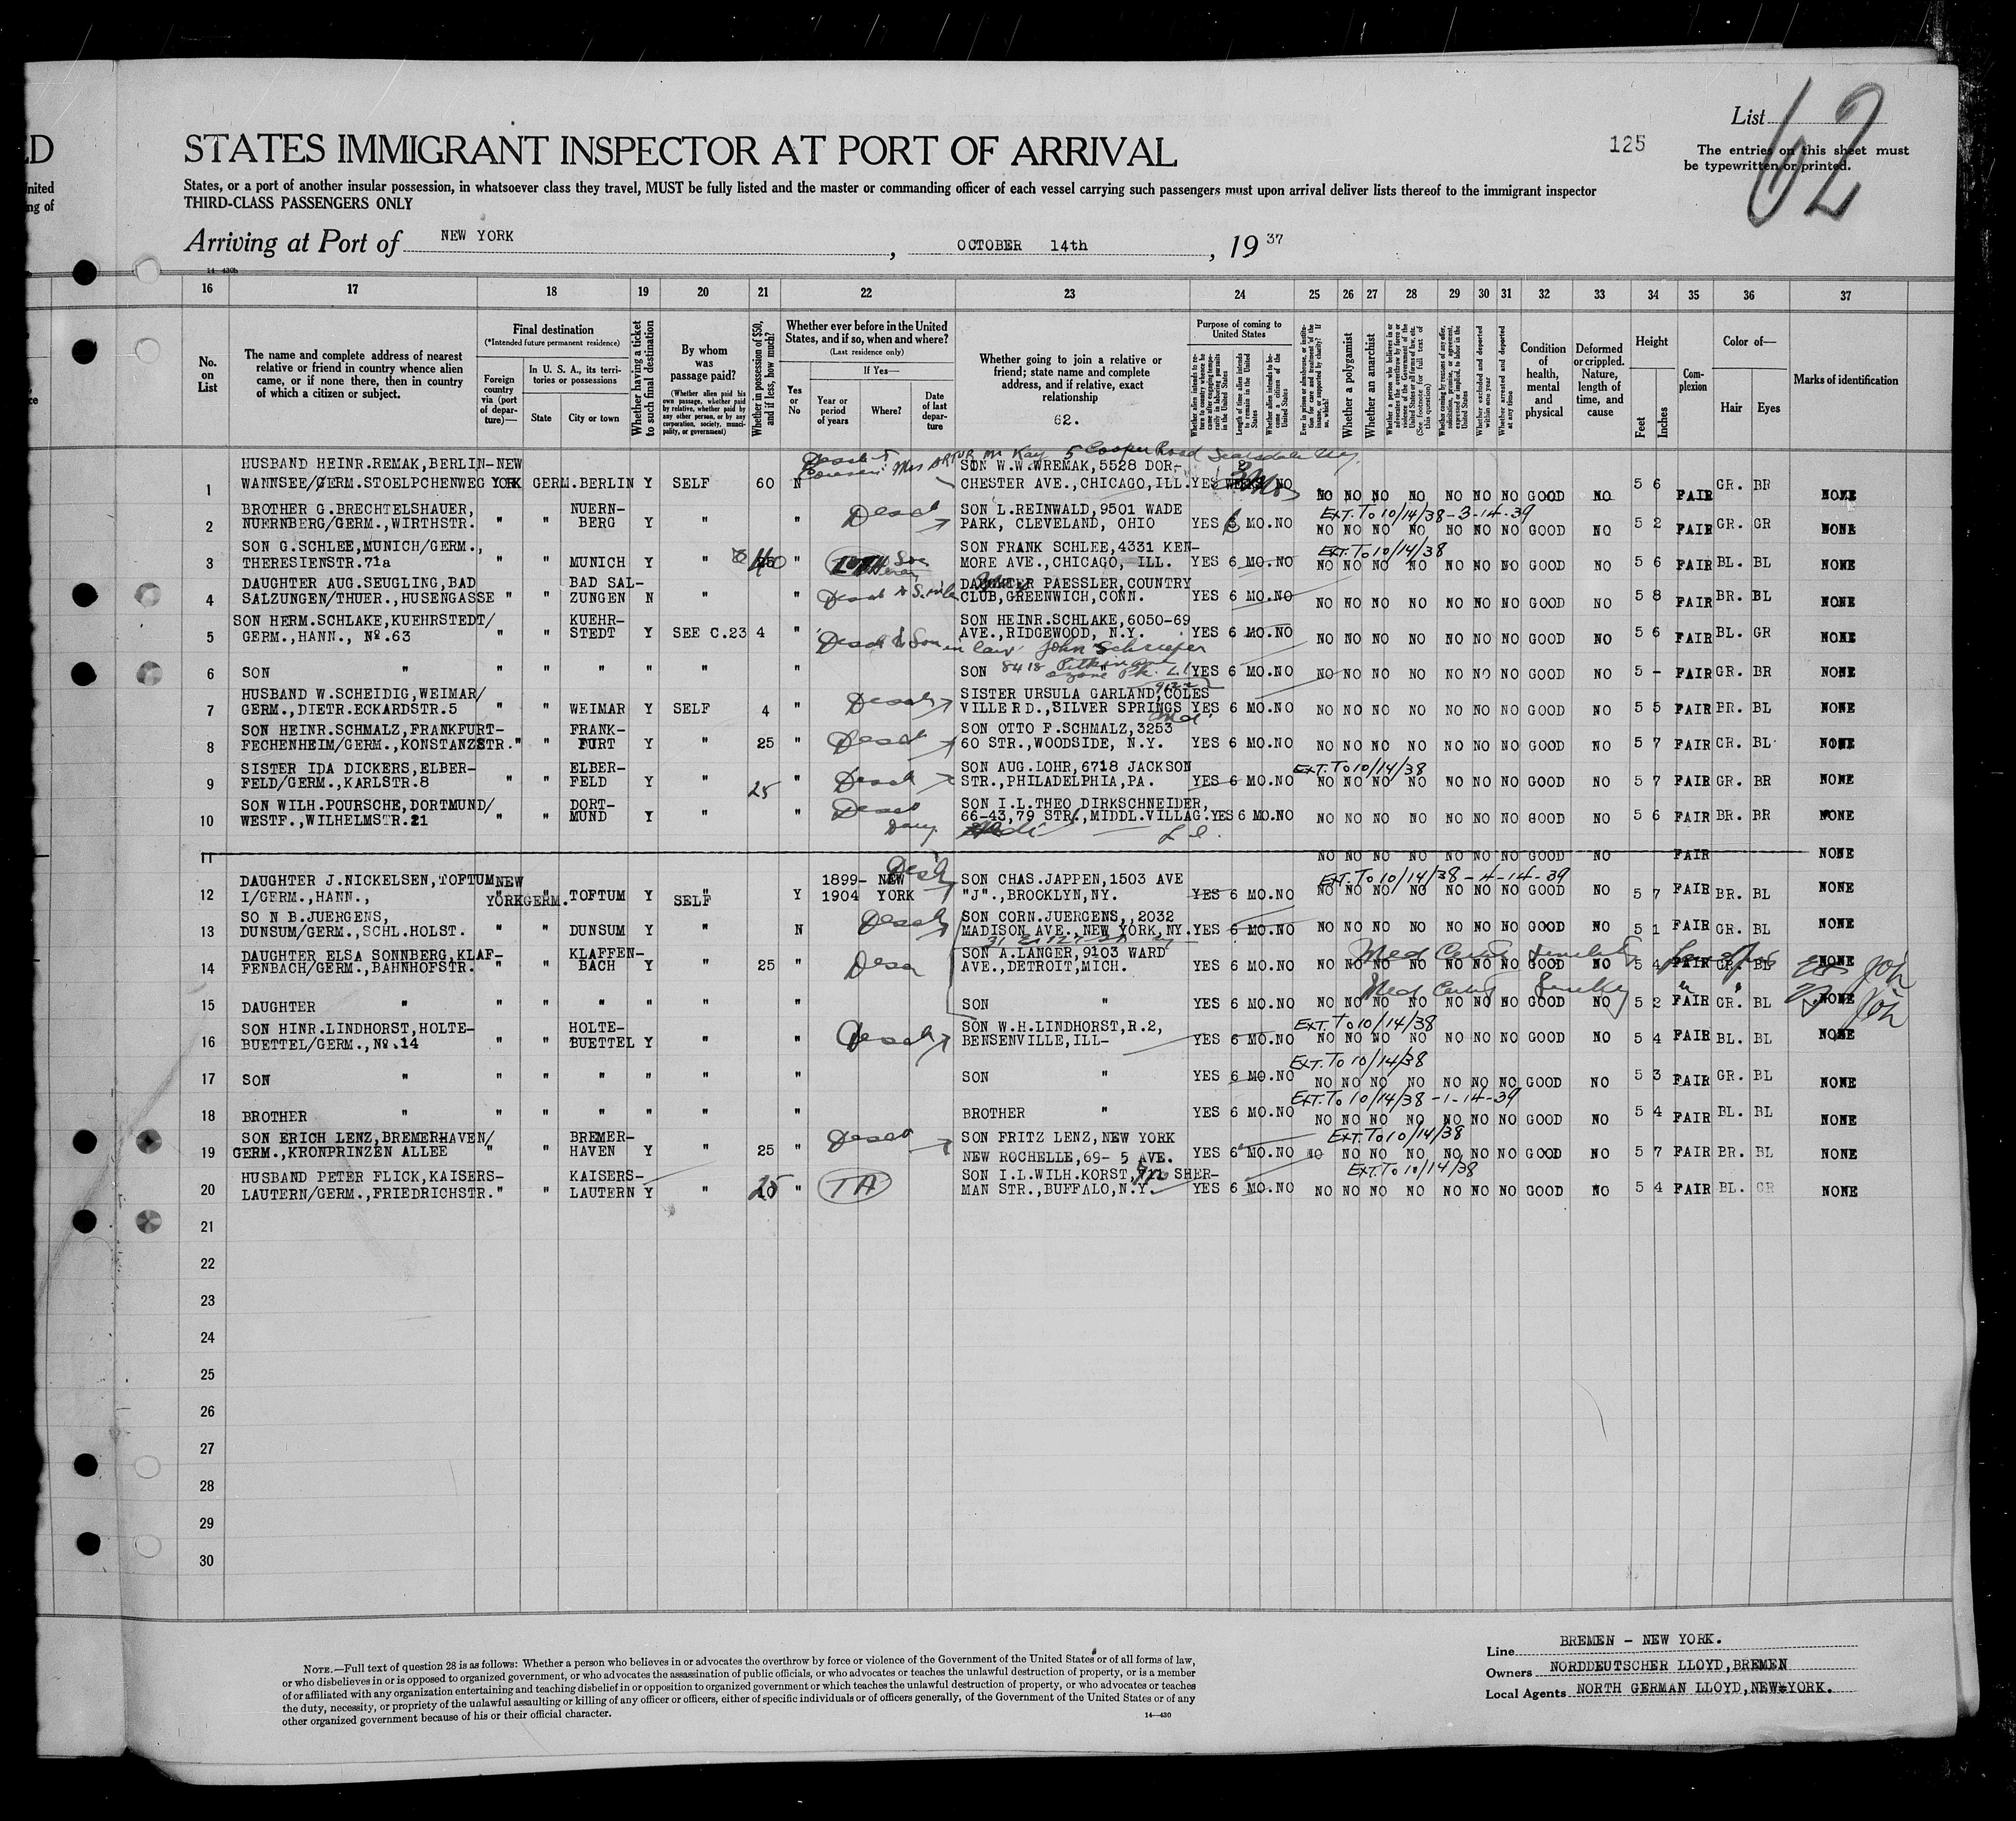 List 62
125
The entries on this sheet must
be typewritten or printed.
STATES IMMIGRANT INSPECTOR AT PORT OF ARRIVAL
States, or a port of another insular possession, in whatsoever class they travel, MUST be fully listed and the master or commanding officer of each vessel carrying such passengers must upon arrival deliver lists thereof to the immigrant inspector
THIRD-CLASS PASSENGERS ONLY
Arriving at Port of NEW YORK, OCTOBER 14th, 1937
14—430b
16 17 18 19 20 21 22 23 24 25 26 27 28 29 30 31 32 33 34 35 36 37
No. on List
The name and complete address of nearest relative or friend in country whence alien came, or if none there, then in country of which a citizen or subject.
Final destination
(*Intended future permanent residence)
Foreign country via (port of departure)—
In U. S. A., its territories or possessions
State
City or town
Whether having a ticket to such final destination
By whom was passage paid?
(Whether alien paid his own passage, whether paid by relative, whether paid by any other person, or by any corporation, society, municipality, or government)
Whether in possession of $50, and if less, how much?
Whether ever before in the United States, and if so, when and where?
(Last residence only)
Yes or No
If Yes—
Year or period of years
Where?
Date of last departure
Whether going to join a relative or friend; state name and complete address, and if relative, exact relationship
62.
Purpose of coming to United States
Whether a polygamist
Whether an anarchist
Condition of health, mental and physical
Deformed or crippled. Nature, length of time, and cause
Height
Feet
Inches
Complexion
Color of—
Hair
Eyes
Marks of identification
Mrs Artur Mc Kay 5 Cooper Road Scarsdale Ny
HUSBAND HEINR.REMAK,BERLIN-NEW SON W.W.WREMAK,5528 DOR-
1 WANNSEE/GERM.STOELPCHENWEG YORK GERM.BERLIN Y SELF 60 N CHESTER AVE.,CHICAGO,ILL. YES NO NO NO NO NO NO NO NO GOOD NO 5 6 FAIR GR. BR NONE
BROTHER G.BRECHTELSHAUER, NUERN- SON L.REINWALD,9501 WADE EXT. To 10/14/38-3-14-39
2 NUERNBERG/GERM.,WIRTHSTR. " " BERG Y " " PARK, CLEVELAND, OHIO YES 6 MO.NO NO NO NO NO NO NO NO GOOD NO 5 2 FAIR GR. GR NONE
SON G.SCHLEE,MUNICH/GERM., SON FRANK SCHLEE,4331 KEN- EXT. To 10/14/38
3 THERESIENSTR.71a " " MUNICH Y " " MORE AVE.,CHICAGO, ILL. YES 6 MO.NO NO NO NO NO NO NO NO GOOD NO 5 6 FAIR BL. BL NONE
DAUGHTER AUG.SEUGLING,BAD BAD SAL- DAUGHTER PAESSLER,COUNTRY
4 SALZUNGEN/THUER.,HUSENGASSE " " ZUNGEN N " " CLUB,GREENWICH,CONN. YES 6 MO.NO NO NO NO NO NO NO NO GOOD NO 5 8 FAIR BR. BL NONE
SON HERM.SCHLAKE,KUEHRSTEDT/ KUEHR- SON HEINR.SCHLAKE,6050-69
5 GERM.,HANN., No.63 " " STEDT Y SEE C.23 4 " AVE.,RIDGEWOOD, N.Y. YES 6 MO.NO NO NO NO NO NO NO NO GOOD NO 5 6 FAIR BL. GR NONE
Son in law John Schriefer
6 SON " " " " " " " SON 8418 Pitkin ave YES 6 MO.NO NO NO NO NO NO NO NO GOOD NO 5 - FAIR GR. BR NONE
Ozone Pk. L.I.
HUSBAND W.SCHEIDIG,WEIMAR/ SISTER URSULA GARLAND,COLES
7 GERM.,DIETR.ECKARDSTR.5 " " WEIMAR Y SELF 4 " VILLE RD.,SILVER SPRINGS Md. YES 6 MO.NO NO NO NO NO NO NO NO GOOD NO 5 5 FAIR BR. BL NONE
SON HEINR.SCHMALZ,FRANKFURT- FRANK- SON OTTO F.SCHMALZ,3253
8 FECHENHEIM/GERM.,KONSTANZSTR." " FURT Y " 25 " 60 STR.,WOODSIDE, N.Y. YES 6 MO.NO NO NO NO NO NO NO NO GOOD NO 5 7 FAIR GR. BL NONE
SISTER IDA DICKERS,ELBER- ELBER- SON AUG.LOHR,6718 JACKSON EXT. To 10/14/38
9 FELD/GERM.,KARLSTR.8 " " FELD Y " 25 " STR.,PHILADELPHIA,PA. YES 6 MO.NO NO NO NO NO NO NO NO GOOD NO 5 7 FAIR GR. BR NONE
SON WILH.POURSCHE,DORTMUND/ DORT- SON I.L.THEO DIRKSCHNEIDER,
10 WESTF.,WILHELMSTR.21 " " MUND Y " " 66-43,79 STR.,MIDDL.VILLAG. YES 6 MO.NO NO NO NO NO NO NO NO GOOD NO 5 6 FAIR BR. BR NONE
11 NO NO NO NO NO NO NO GOOD NO FAIR NONE
DAUGHTER J.NICKELSEN,TOFTUM NEW 1899- NEW SON CHAS.JAPPEN,1503 AVE EXT. To 10/14/38-4-14-39
12 I/GERM.,HANN., YORK GERM. TOFTUM Y SELF Y 1904 YORK "J".,BROOKLYN,NY. YES 6 MO.NO NO NO NO NO NO NO NO GOOD NO 5 7 FAIR BR. BL NONE
SO N B.JUERGENS, SON CORN.JUERGENS,,2032
13 DUNSUM/GERM.,SCHL.HOLST. " " DUNSUM Y " N MADISON AVE.,NEW YORK,NY. YES 6 MO.NO NO NO NO NO NO NO NO GOOD NO 5 1 FAIR GR. BL NONE
DAUGHTER ELSA SONNBERG,KLAF- KLAFFEN- SON A.LANGER,9103 WARD Med Cert Senility
14 FENBACH/GERM.,BAHNHOFSTR. " " BACH Y " 25 " AVE.,DETROIT,MICH. YES 6 MO.NO NO NO NO NO NO NO NO GOOD NO 5 4 FAIR GR. BL NONE
Med Cert Senility
15 DAUGHTER " " " " " " " SON " YES 6 MO.NO NO NO NO NO NO NO NO GOOD NO 5 2 FAIR GR. BL NONE
SON HINR.LINDHORST,HOLTE- HOLTE- SON W.H.LINDHORST,R.2, EXT. To 10/14/38
16 BUETTEL/GERM.,No.14 " " BUETTEL Y " " BENSENVILLE,ILL- YES 6 MO.NO NO NO NO NO NO NO NO GOOD NO 5 4 FAIR BL. BL NONE
EXT. To 10/14/38
17 SON " " " " " " " SON " YES 6 MO.NO NO NO NO NO NO NO NO GOOD NO 5 3 FAIR GR. BL NONE
EXT. To 10/14/38-1-14-39
18 BROTHER " " " " " " " BROTHER " YES 6 MO.NO NO NO NO NO NO NO NO GOOD NO 5 4 FAIR BL. BL NONE
SON ERICH LENZ,BREMERHAVEN/ BREMER- SON FRITZ LENZ,NEW YORK EXT. To 10/14/38
19 GERM.,KRONPRINZEN ALLEE " " HAVEN Y " 25 " NEW ROCHELLE,69- 5 AVE. YES 6 MO.NO NO NO NO NO NO NO NO GOOD NO 5 7 FAIR BR. BL NONE
HUSBAND PETER FLICK,KAISERS- KAISERS- SON I.L.WILH.KORST, SHER- EXT. To 10/14/38
20 LAUTERN/GERM.,FRIEDRICHSTR." " LAUTERN Y " 25 " TA MAN STR.,BUFFALO,N.Y. YES 6 MO.NO NO NO NO NO NO NO NO GOOD NO 5 4 FAIR BL. GR NONE
21
22
23
24
25
26
27
28
29
30
NOTE.—Full text of question 28 is as follows: Whether a person who believes in or advocates the overthrow by force or violence of the Government of the United States or of all forms of law,
or who disbelieves in or is opposed to organized government, or who advocates the assassination of public officials, or who advocates or teaches the unlawful destruction of property, or is a member
of or affiliated with any organization entertaining and teaching disbelief in or opposition to organized government or which teaches the unlawful destruction of property, or who advocates or teaches
the duty, necessity, or propriety of the unlawful assaulting or killing of any officer or officers, either of specific individuals or of officers generally, of the Government of the United States or of any
other organized government because of his or their official character.
14—430
Line BREMEN - NEW YORK.
Owners NORDDEUTSCHER LLOYD,BREMEN
Local Agents NORTH GERMAN LLOYD,NEW YORK.